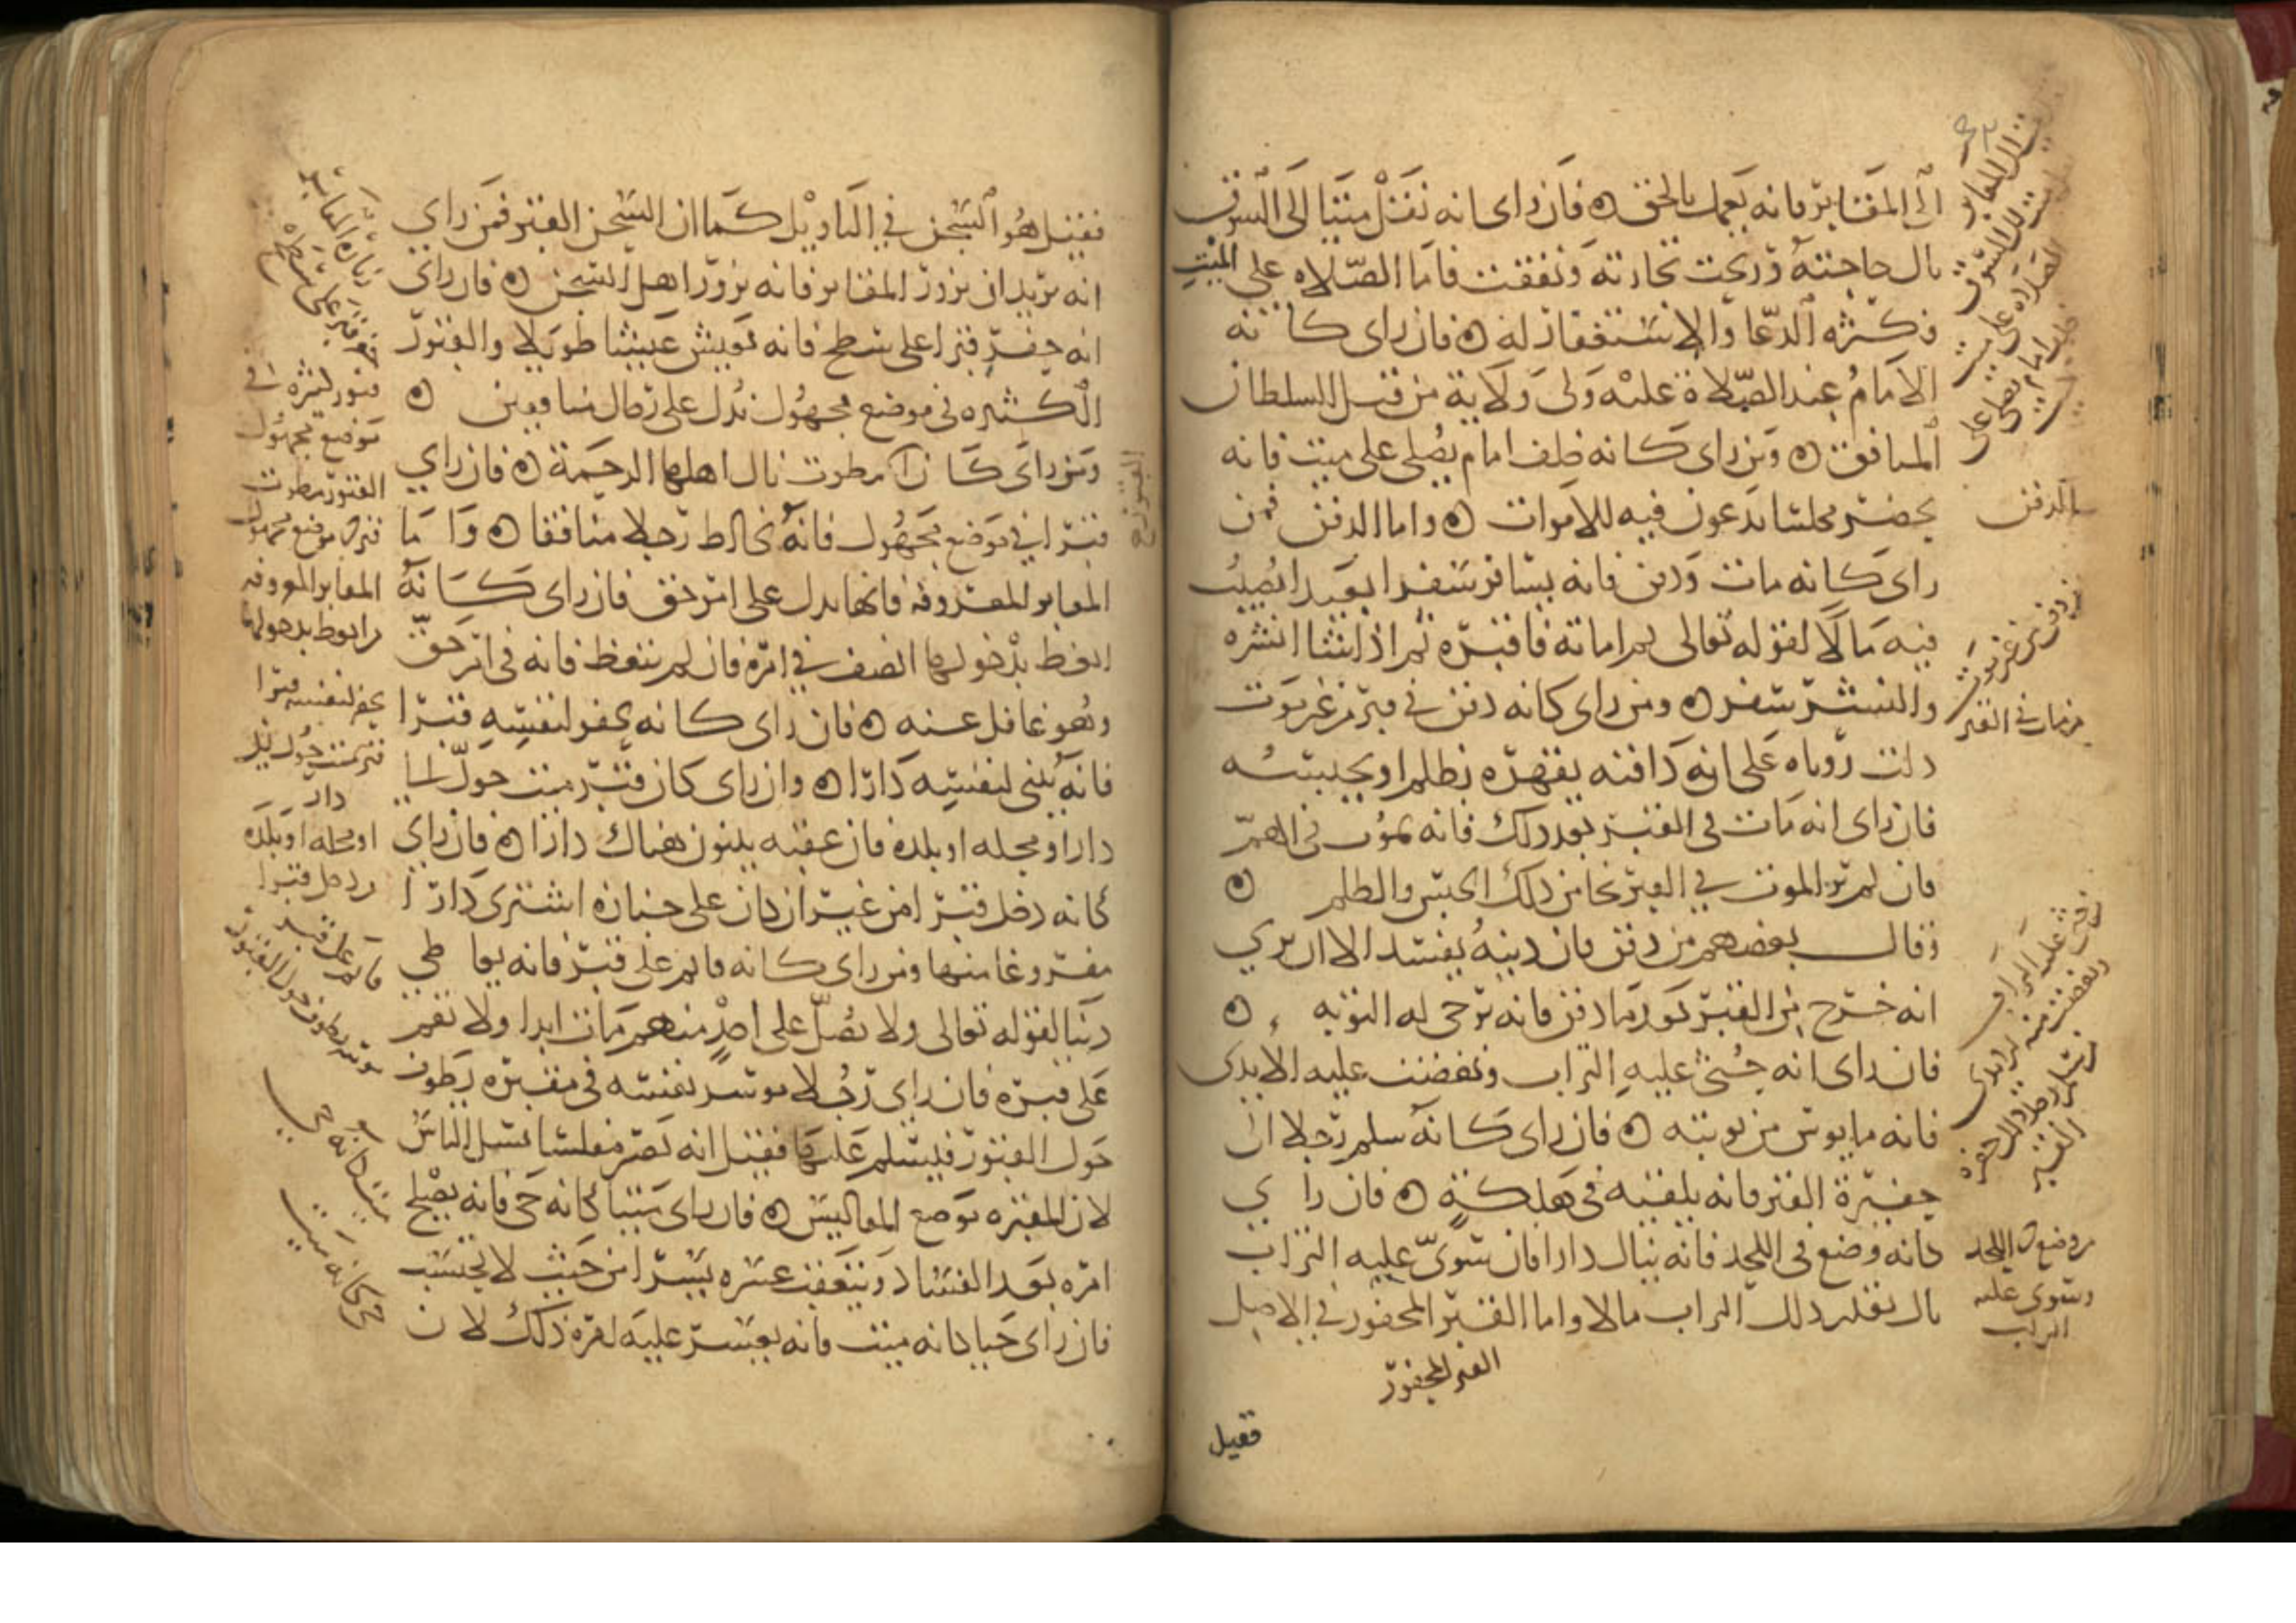 الى المقابر فانه يعمل بالحق ۞ فان راى انه نقل ميتا الى السوق
نال حاجته وربحت تجارته ونفقت فاما الصلاه على الميت
فكثره الدعا والاستغفار له ۞ فان راى كانه
الامام عند الصلاة عليه ولى ولاية من قبل السلطان
المنافق ۞ ومن راى كانه خلف امام يصلى على ميت فانه
يحضر مجلسا يدعون فيه للاموات ۞ واما الدفن فمن
راى كانه مات ودفن فانه يسافر سفرا بعيدا يصيب
فيه مالا لقوله تعالى ثم اماته فاقبره ثم اذا شا انشره
والنشر سفر ۞ ومن راى كانه دفن في قبر من غير موت
دلت روياه على انه دافنه يقهره بظلم او يحبسه
فان راى انه مات في القبر بعد ذلك فانه يموت في الهم
فان لم ير الموت في القبر نجا من ذلك الحبس والظلم ۞
وقال بعضهم من دفن فان دينه يفسد الا ان يرى
انه خرج من القبر بعد ما دفن فانه ترجى له التوبه ۞
فان راى انه حثى عليه التراب ونفضت عليه الايدى
فانه مايوس من توبته ۞ فان راى كانه سلم رجلا الى
حفيرة القبر فانه يلقيه في هلكة ۞ فان راى
كانه وضع في اللحد فانه ينال دارا فان سوى عليه التراب
نال بقدر ذلك التراب مالا واما القبر المحفور في الاصل
القبر المحفور
فقيل
نقل الى المقابر
الصلاه على ميت
خلف امام يصلى على
الدفن
من دفن من غير موت
من مات في القبر
القبر
من وضع في اللحد
وسوى عليه
التراب
فقيل هو السجن في التاويل كما ان السجن القبر فمن راى
انه يريد ان يزور المقابر فانه يزور اهل السجن ۞ فان راى
انه حفر قبرا على سطح فانه يعيش عيشا طويلا والقبور
الكثيره في موضع مجهول تدل على رجال منافقين ۞
ومن راى كان مطرت نال اهلها الرحمة ۞ فان راى
قبرا في موضع مجهول فانه يخالط رجلا منافقا ۞ واما
المقابر المعروفه فانها تدل على امر حق فان راى كانه
اتعظ بدخولها انصف في امره فان لم يتعظ فانه في امر حق
وهو غافل عنه ۞ فان راى كانه يحفر لنفسه قبرا
فانه يبنى لنفسه دارا ۞ وان راى كان قبر ميت حول الى
دار او محله او بلده فان عقبه يبنون هناك دارا ۞ فان راى
كانه دخل قبرا من غير ان كان على جنازه اشترى دارا
مفروغا منها ومن راى كانه قايم على قبر فانه يعاطى
دنيا لقوله تعالى ولا تصل على احد منهم مات ابدا ولا تقم
على قبره فان راى رجلا موسر نفسه في مقبره يطوف
حول القبور فيسلم عليها فقيل انه يصر مفلسا يسل الناس
لان المقبره موضع المفاليس ۞ فان راى ميتا كانه حى فانه يصلح
امره بعد الفساد ويتعقب عسره يسرا من حيث لا يحتسب
فان راى حيا كانه ميت فانه يعسر عليه امره ذلك لان
زيارة المقابر
حفر قبر على سطح
قبور كثره في
موضع مجهول
القبور مطرت
قبر في موضع مجهول
المقابر المعروفه
من اتعظ بدخولها
يحفر لنفسه قبرا
قبر ميت حول الى
دار
او محله او بلده
من دخل قبرا
قايم على قبر
موسر يطوف حول القبور
ميت كانه حي
حى كانه ميت